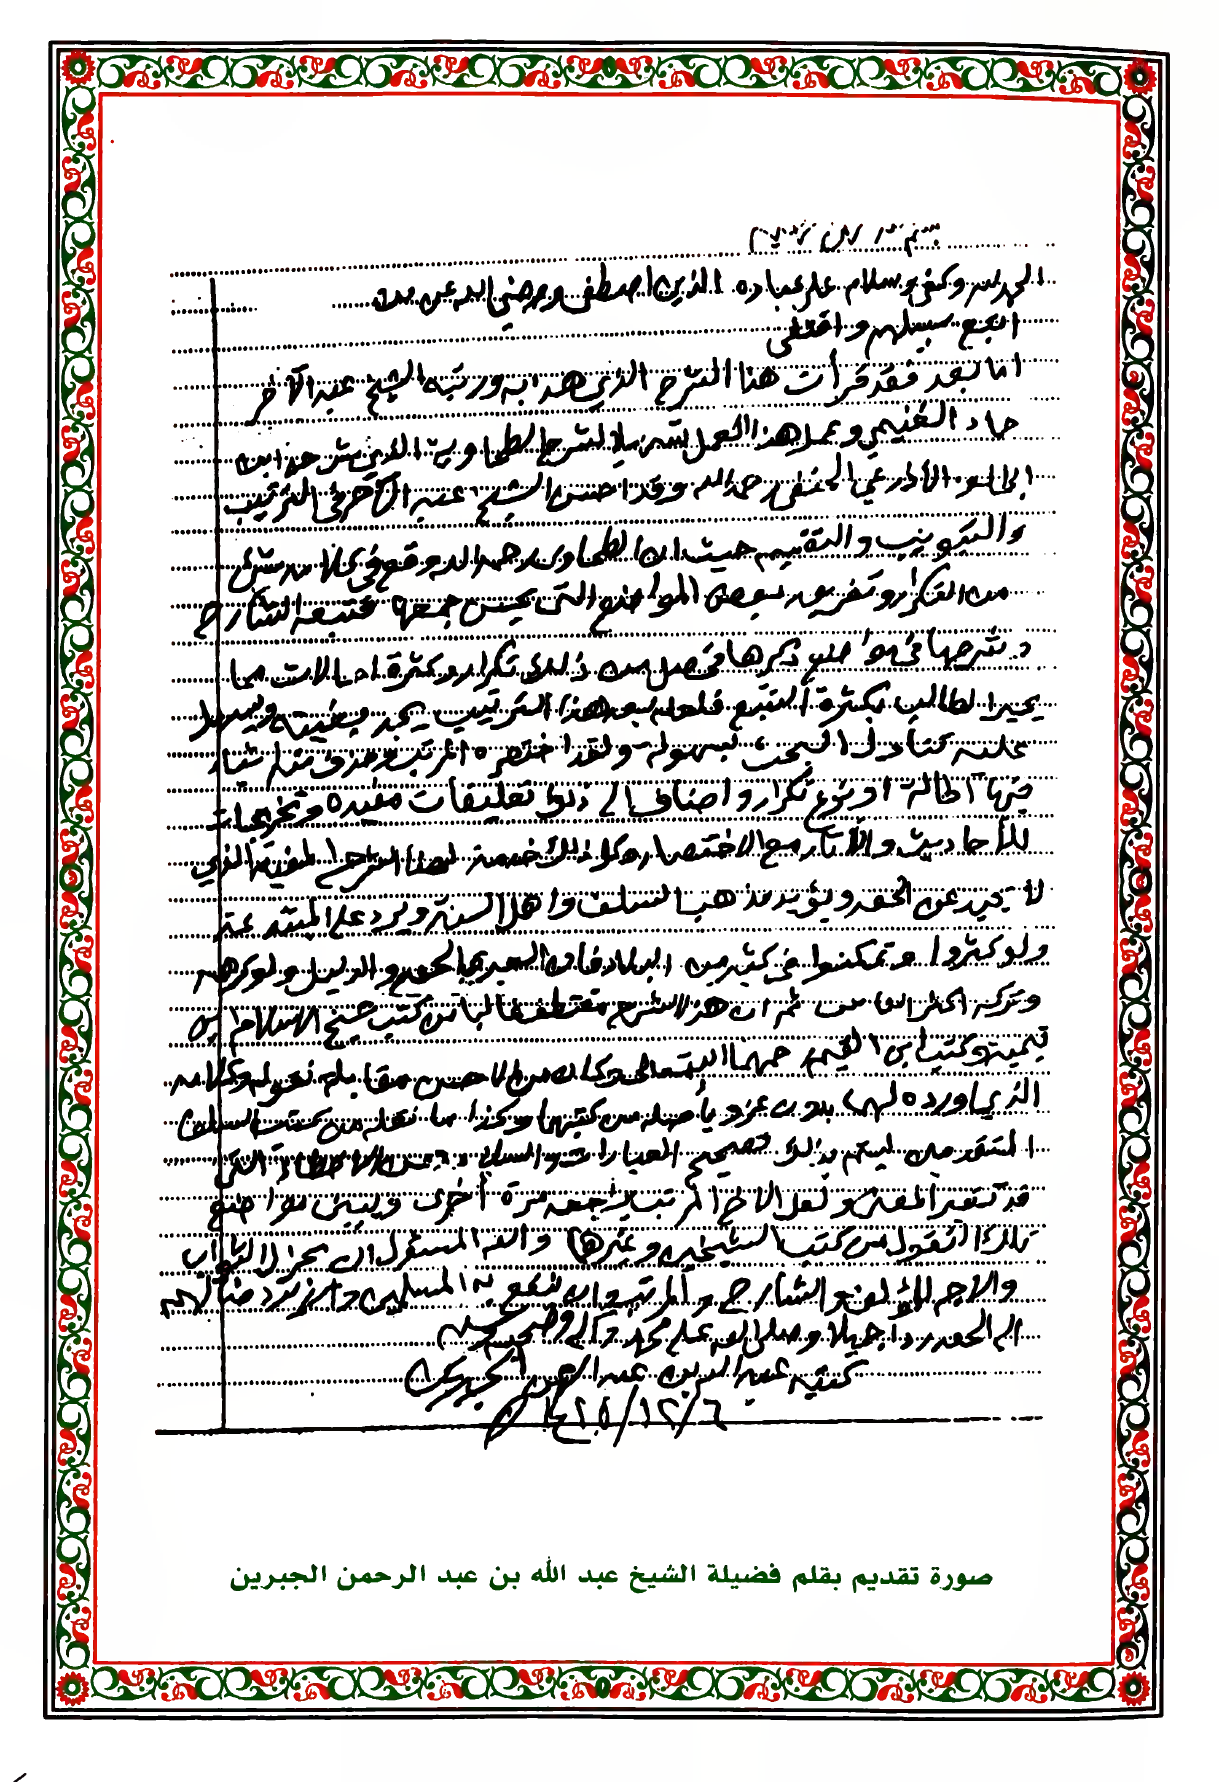 بسم الله الرحمن الرحيم
الحمد لله وكفى وسلام على عباده الذين اصطفى ورضي الله عن من
اتبع سبيلهم واقتفى
اما بعد فقد قرأت هذا الشرح الذي هذبه ورتبه الشيخ عبد الآخر
حماد الغنيمي وعمل هذا العمل تسهيلا لشرح الطحاوية الذي شرحه ابن
ابي العز الأذرعي الحنفي رحمه الله وقد احسن الشيخ عبد الآخر في الترتيب
والتبويب والتقسيم حيث ان الطحاوي رحمه الله وقع في كلامه شيء
من التكرار وتفريق بعض المواضع التي يحسن جمعها فتبعه الشارح
وشرحها في مواضع ذكرها فحصل من ذلك تكرار وكثرة احالات مما
يحير الطالب بكثرة التتبع فلعله بعد هذا الترتيب يجد بغيته ويسهل
عليه تناول البحث بسهولة ولقد اختصره المرتب وحذف منه شيئا
فيه اطالة او نوع تكرار واضاف الى ذلك تعليقات مفيدة وتخريجات
للأحاديث والآثار مع الاختصار وكل ذلك خدمة لهذا الشرح النفيس الذي
لا يحيد عن الحق ويؤيد مذهب السلف واهل السنة ويرد على المبتدعة
ولو كثروا وتمكنوا في كثير من البلاد فان العبرة بالحق والدليل ولو كرهه
وتركه اكثر الناس ثم ان هذا الشرح مقتطف غالبا من كتب شيخ الاسلام ابن
تيمية وكتب ابن القيم رحمهما الله تعالى وكان من الاحسن مقابلة نقوله وكلامه
الذي اورده لهما بدون عزو بأصله من كتبهما وكذا ما نقله من كتب السلف
المتقدمين ليتم بذلك تصحيح العبارات والسلامة من الاخطاء التي
قد تغير المعنى ولعل الاخ المرتب يراجعه مرة أخرى ويبين مواضع
تلك النقول من كتب الشيخين وغيرها والله المسئول ان يجزل الثواب
والاجر للمؤلف والشارح والمرتب وان ينفع به المسلمين وان يرد ضالهم
الى الحق ردا جميلا وصلى الله على محمد وآله وصحبه وسلم
كتبه عبد الله بن عبد الرحمن الجبرين
٦/١٢/
صورة تقديم بقلم فضيلة الشيخ عبد الله بن عبد الرحمن الجبرين